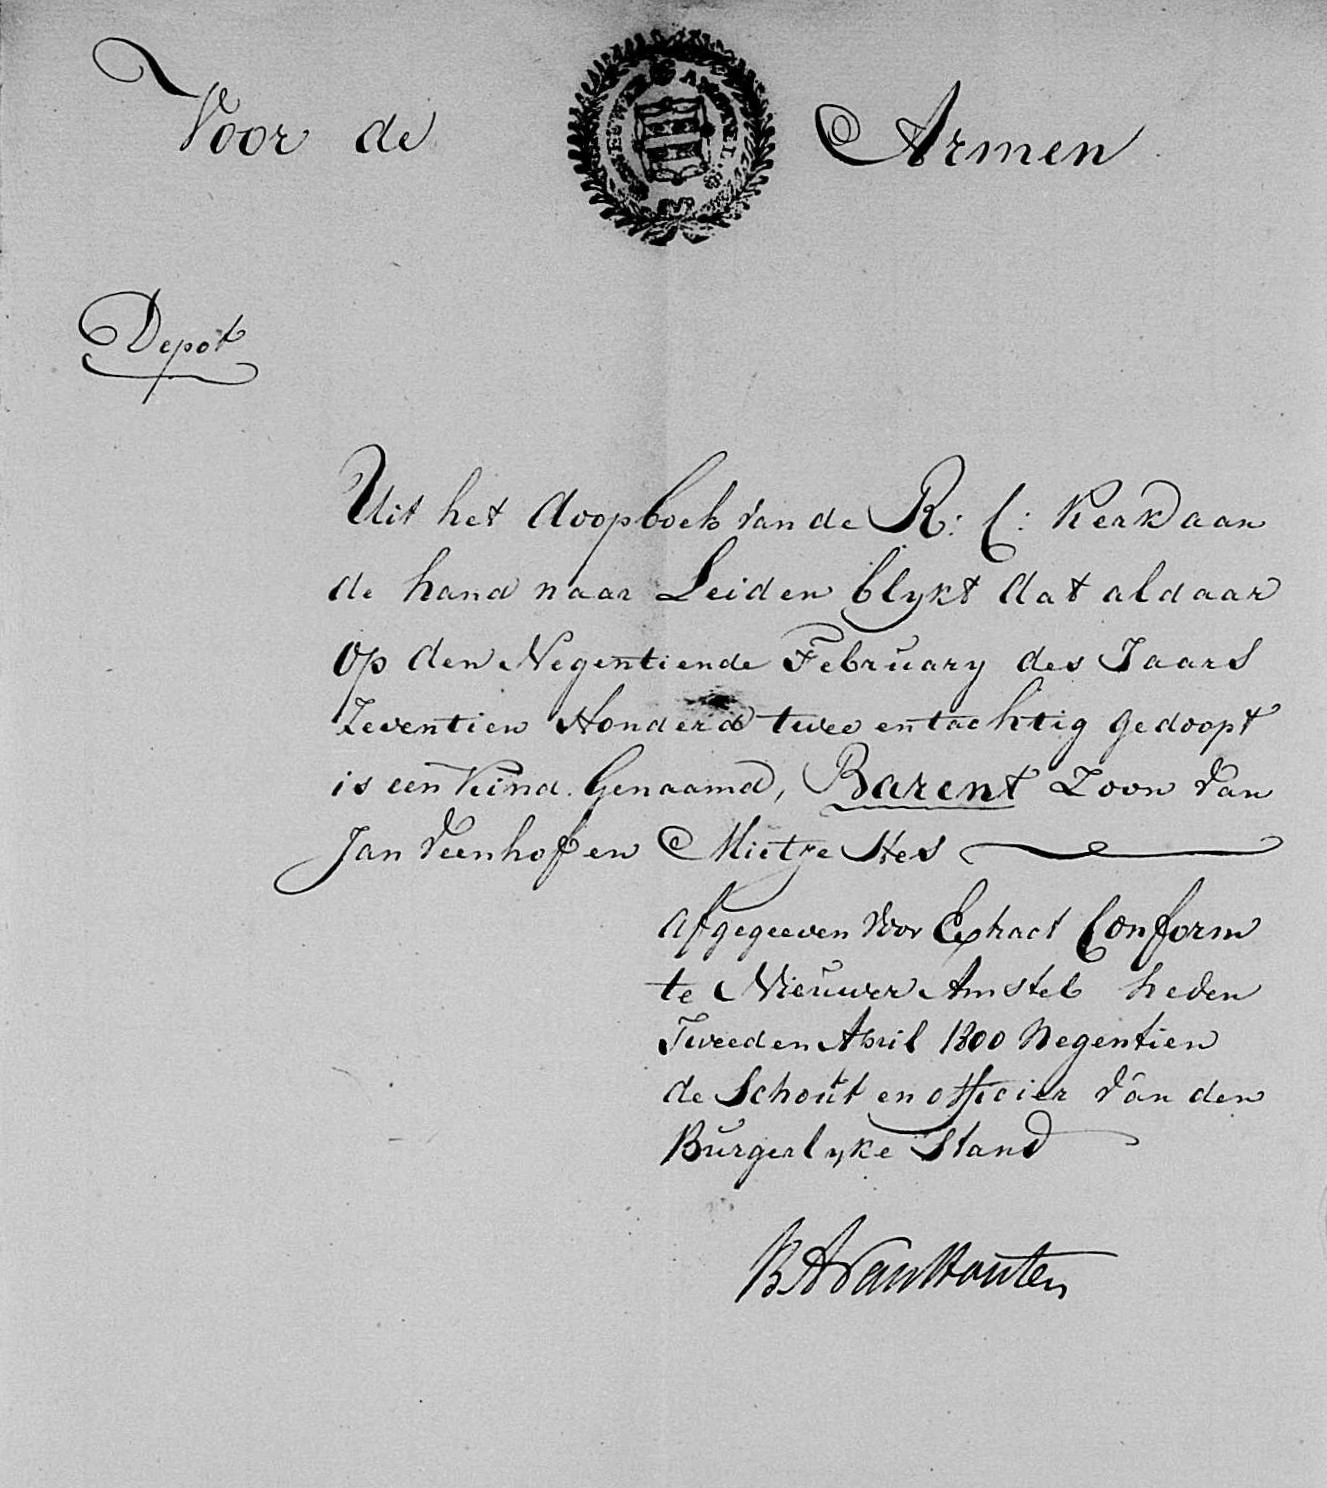 Voor de Armen
NIEUWER AMSTEL
Depôt
Uit het doopboek van de R: C: Kerk aan
de hand naar Leiden blykt dat aldaar
op den Negentiende February des Jaars
Zeventien Honderd twee en tachtig gedoopt
is een Kind Genaamd, Barent Zoon van
Jan Veenhof en Mietje Hes
afgegeeven voor Extract Conform
te Nieuwer Amstel heden
Tweeden April 1800 Negentien
de Schout en officier van den
Burgerlyke Stand
B A van Houten